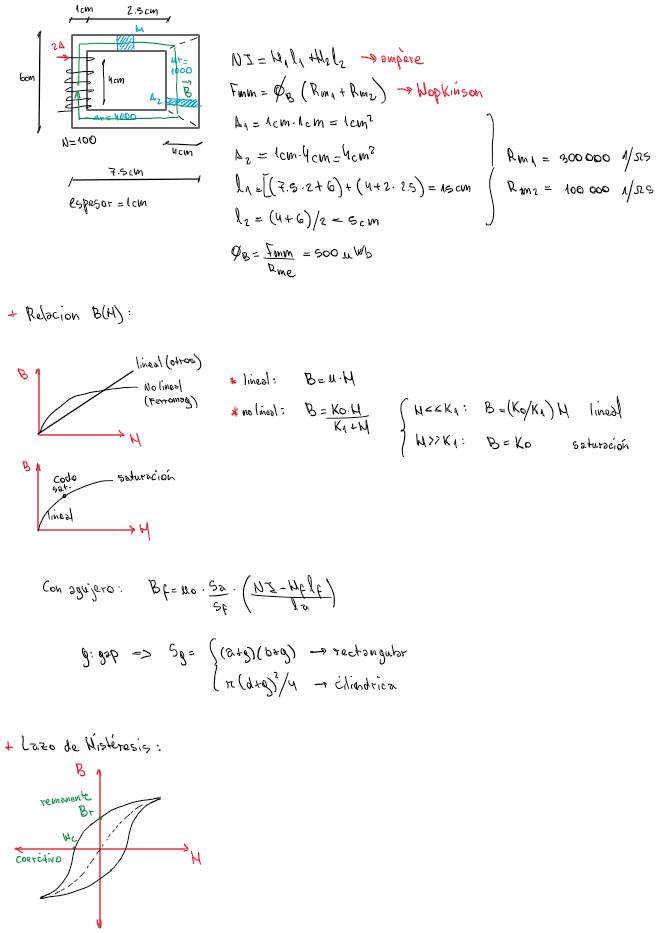 1cm 2.5cm
A1
2A
μr=1000
6cm
4cm
A2
B
μr=4000
N=100
4cm
7.5cm
espesor = 1cm
NI = H1 l1 + H2 l2 → ampère
Fmm = ΦB (Rm1 + Rm2) → Hopkinson
A1 = 1cm·1cm = 1cm²
A2 = 1cm·4cm = 4cm²
l1 = [(7.5·2+6)+(4+2·2.5) = 15cm
l2 = (4+6)/2 = 5cm
Rm1 = 300000 1/Ωs
Rm2 = 100 000 1/Ωs
ΦB = Fmm/Rme = 500 μWb
+ Relacion B(H):
B
lineal (otros)
No lineal
(Ferromag)
H
* lineal: B = μ·H
* no lineal: B = K0·H/K1+H
H<<K1: B = (K0/K1) H lineal
H>>K1: B = K0 saturación
B
Codo
sat.
saturación
lineal
H
Con agujero: Bf = μ0 · Sa/Sf · (NI - Hf lf/la)
g: gap => Sg = {(a+g)(b+g) → rectangular
π(d+g)²/4 → cilindrica
+ Lazo de Histéresis:
B
remanente
Br
Hc
coercitivo
H